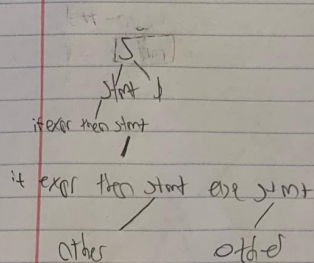 S
stmt $
if expr then stmt
if expr then stmt else stmt
other other